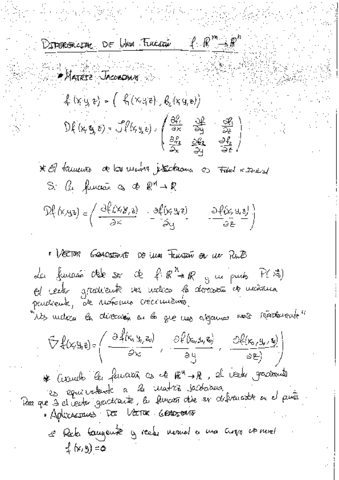 DIFERENCIAL DE UNA FUNCIÓN f: ℝᵐ → ℝⁿ
• MATRIZ JACOBIANA
f(x,y,z) = ( f₁(x,y,z), f₂(x,y,z) )
Df(x,y,z) = Jf(x,y,z) = ( ∂f₁/∂x ∂f₁/∂y ∂f₁/∂z
∂f₂/∂x ∂f₂/∂y ∂f₂/∂z )
* El tamaño de la matriz jacobiana es Final × Inicial
Si la función es de ℝᵐ → ℝ
Df(x,y,z) = ( ∂f(x,y,z)/∂x , ∂f(x,y,z)/∂y , ∂f(x,y,z)/∂z )
• VECTOR GRADIENTE DE UNA FUNCIÓN EN UN PUNTO
La función debe ser de f: ℝᵐ → ℝ y un punto P
El vector gradiente nos indica la dirección de máxima
pendiente, de máximo crecimiento.
"Nos indica la dirección en la que nos alejamos más rápidamente"
∇f(x,y,z) = ( ∂f(x₀,y₀,z₀)/∂x , ∂f(x₀,y₀,z₀)/∂y , ∂f(x₀,y₀,z₀)/∂z )
* Cuando la función es de ℝᵐ → ℝ, el vector gradiente
es equivalente a la matriz jacobiana.
Para que ∃ el vector gradiente, la función debe ser diferenciable en el punto
• APLICACIONES DEL VECTOR GRADIENTE
Recta tangente y recta normal a una curva de nivel
f(x,y)=0